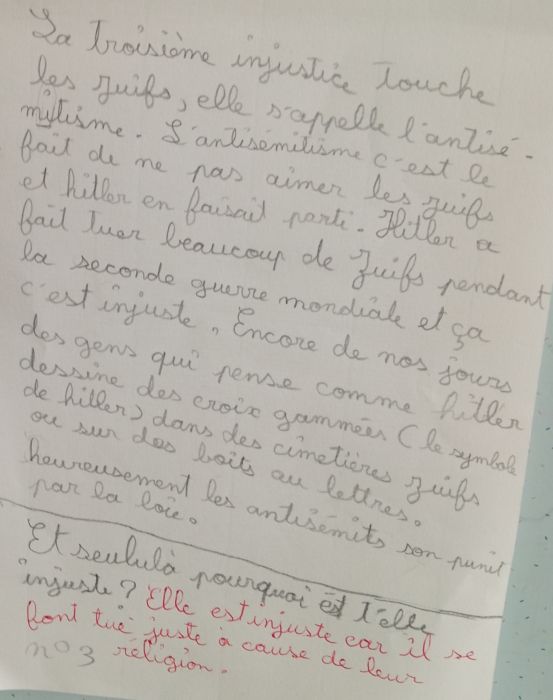 La troisième injustice touche
les juifs, elle s'appelle l'antisé-
mitisme. L'antisémitisme c'est le
fait de ne pas aimer les juifs
et hitler en faisait parti. Hitler a
fait tuer beaucoup de juifs pendant
la seconde guerre mondiale et ça
c'est injuste. Encore de nos jours
des gens qui pense comme hitler
dessine des croix gammées (le symbole
de hitler) dans des cimetières juifs
ou sur des boits au lettres.
heureusement les antisémits son punit
par la loie.
Et seululà pourquoi est t'elle
injuste? Elle est injuste car il se
font tué juste à cause de leur
n°3 réligion.